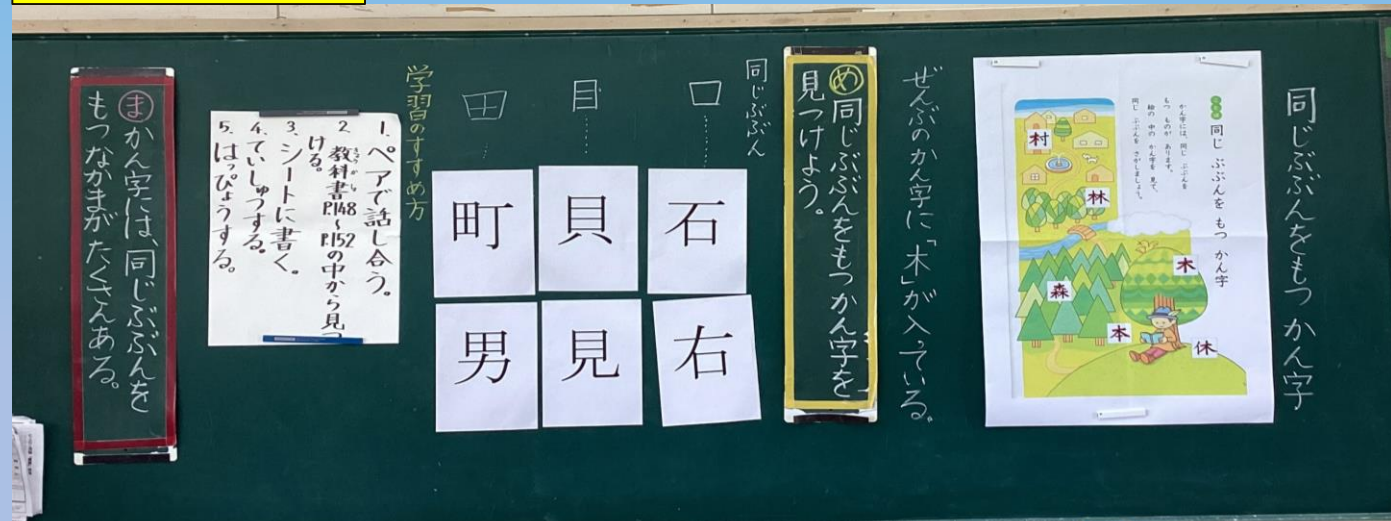 同じぶぶんをもつかん字
同じ ぶぶんを もつ かん字
かん字には、同じ ぶぶんを
もつ ものが あります。
絵の 中の かん字を 見て、
同じ ぶぶんを さがしましょう。
村
林
木
森
本
休
ぜんぶのかん字に「木」が入っている。
め 同じぶぶんをもつかん字を
見つけよう。
同じぶぶん
口……
石
右
目……
貝
見
田……
町
男
学習のすすめ方
1. ペアで話し合う。
2. 教科書P.148~P.152の中から見つ
ける。
3. シートに書く。
4. ていしゅつする。
5. はっぴょうする。
ま かん字には、同じぶぶんを
もつなかまがたくさんある。